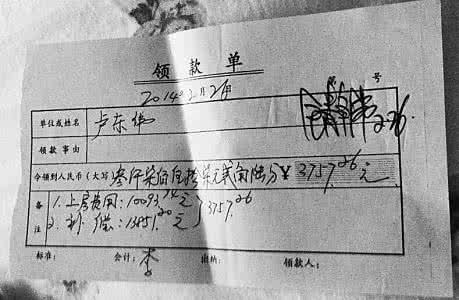 领款单
2014年2月26日
第 号
单位或姓名 卢东伟
领款事由
今领到人民币(大写) 叁仟柒佰伍拾柒元贰角陆分 ¥ 3757.26元
备注 1.上房费用:10093.74元
2.补偿:13851.00元 } 3757.26
标准: 会计:李 出纳: 领款人: